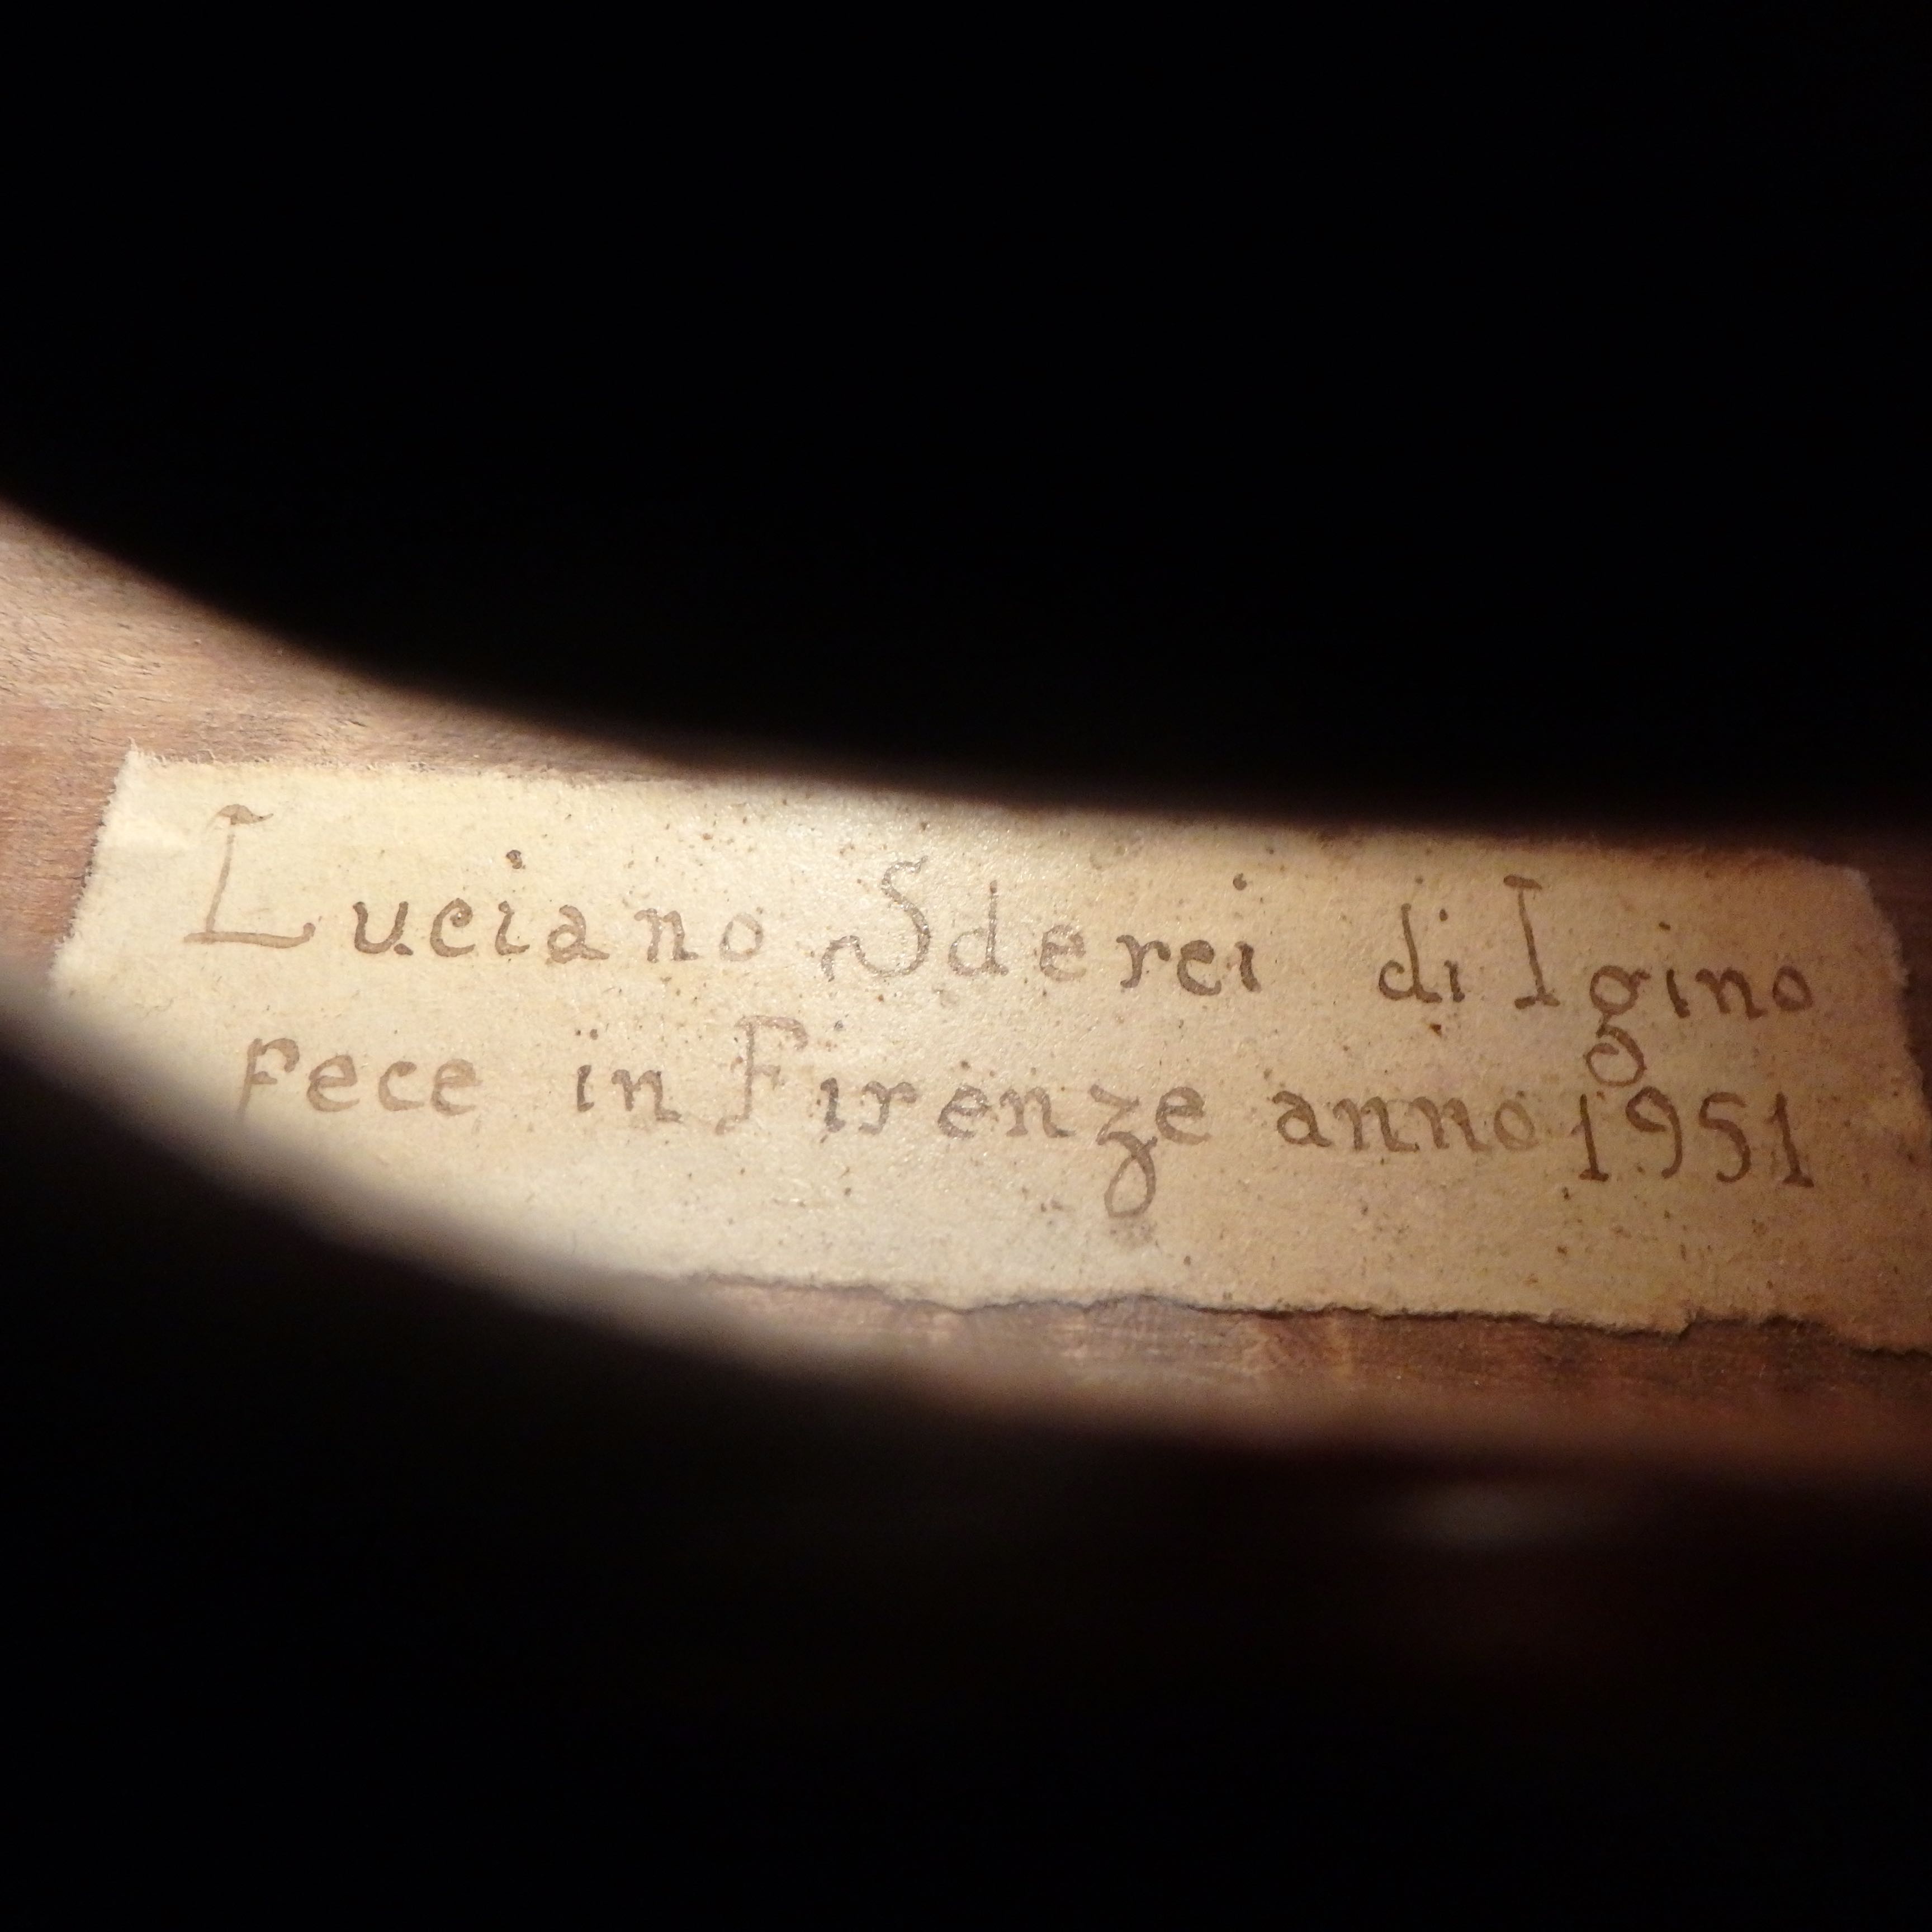 Luciano Sderci di Igino
fece in Firenze anno 1951